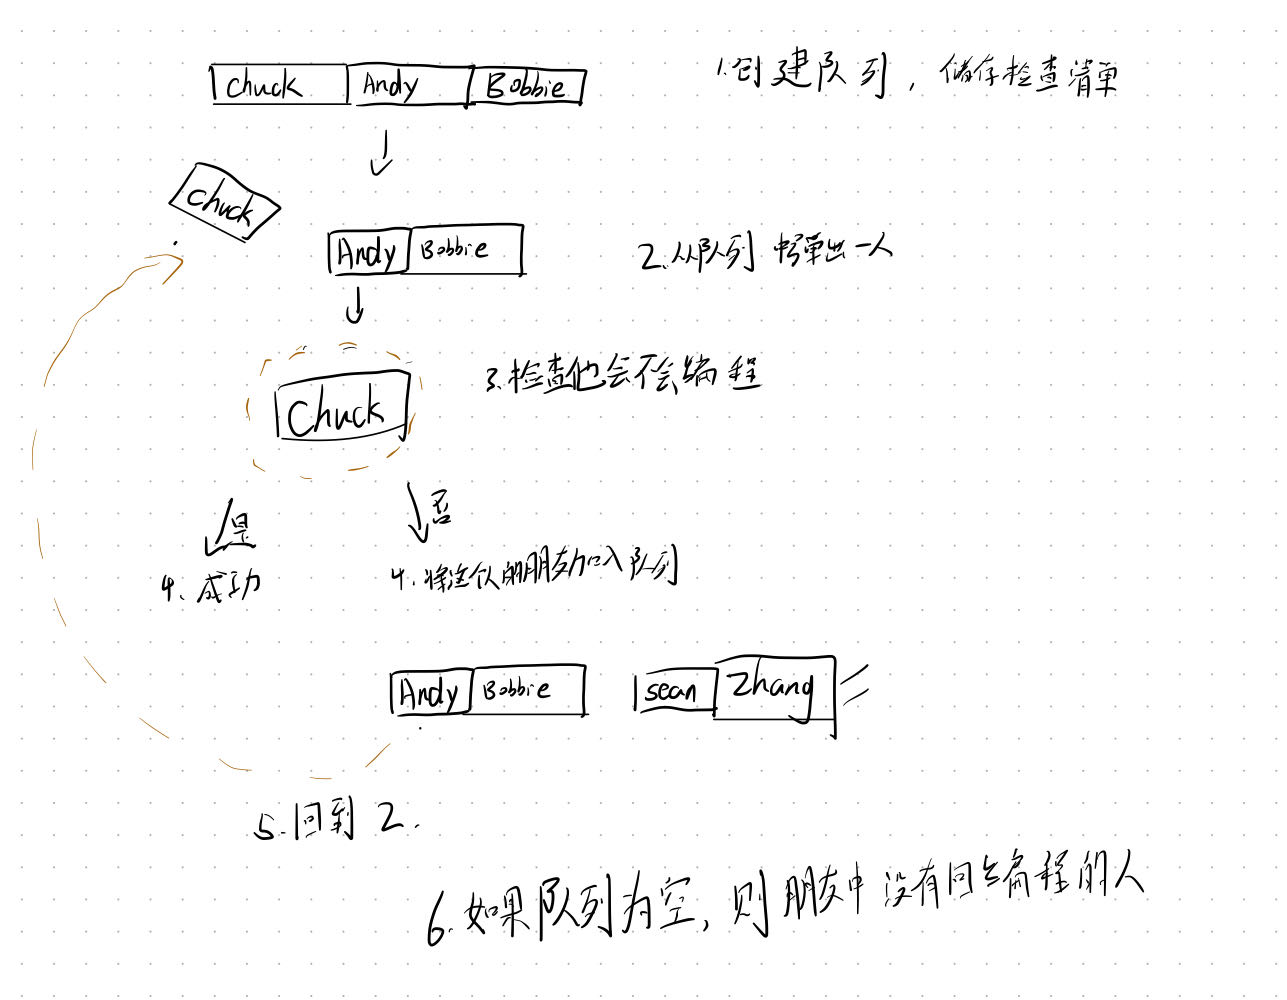 Chuck Andy Bobbie
1.创建队列，储存检查清单
Chuck
Andy Bobbie
2.从队列中弹出一人
3.检查他会不会编程
Chuck
是
否
4.成功
4.将这个人的朋友加入队列
Andy Bobbie sean Zhang
5.回到2.
6.如果队列为空，则朋友中没有会编程的人